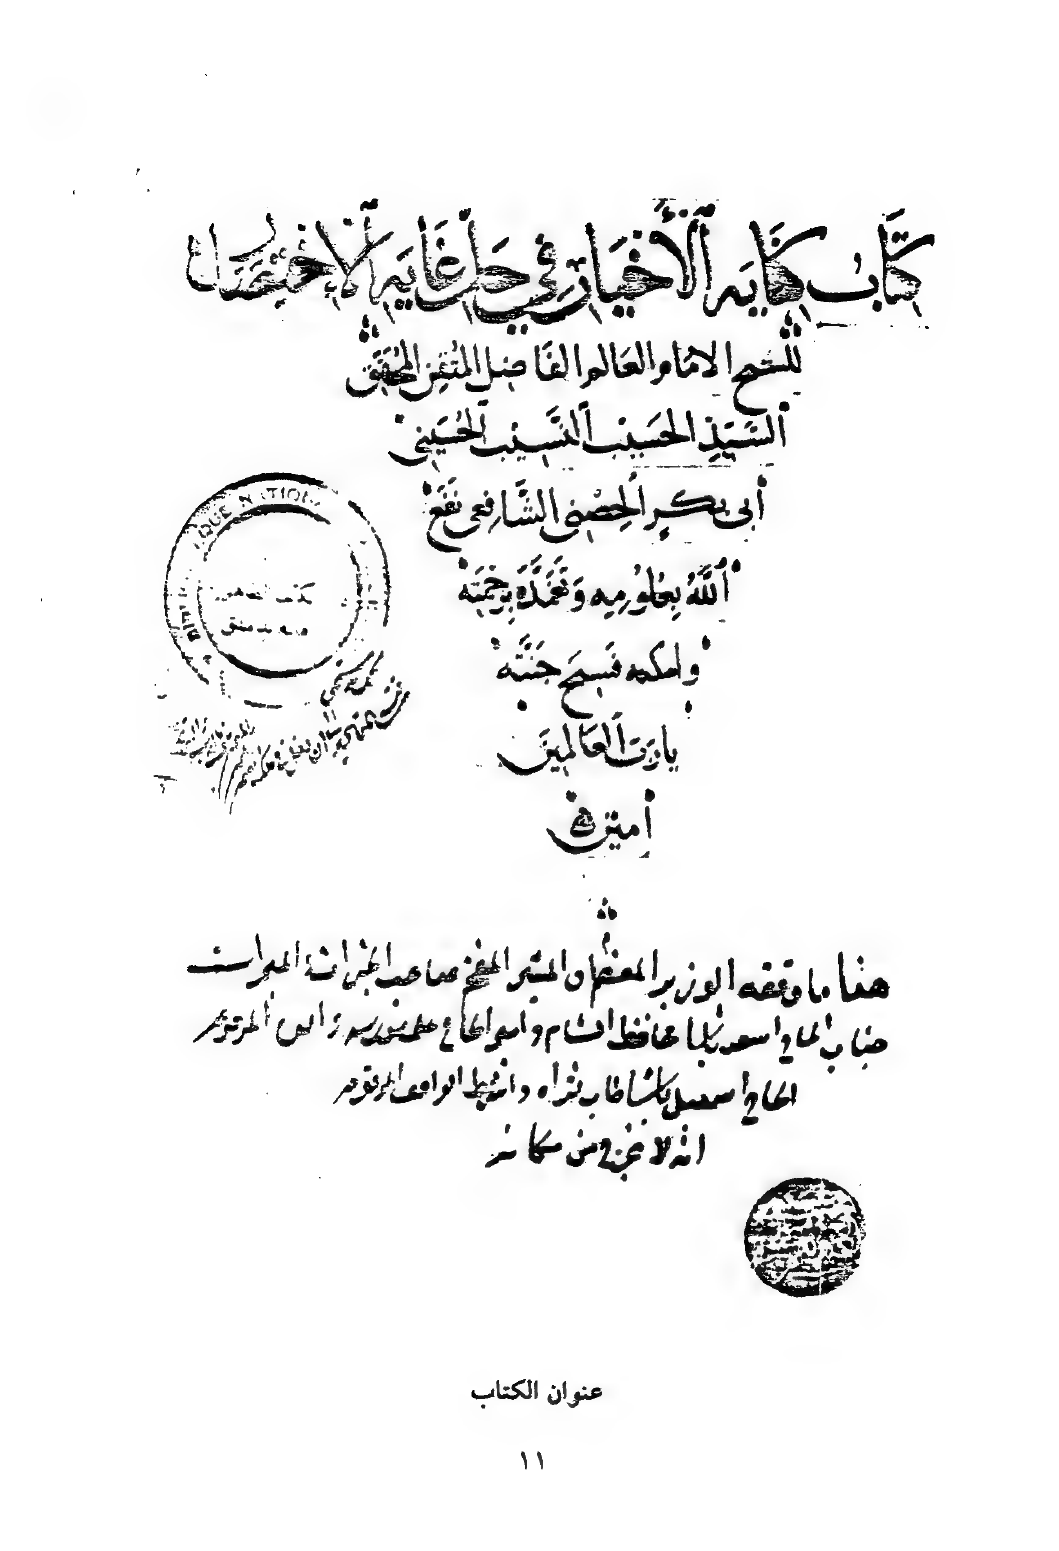 كتاب كفاية الأخيار في حل غاية الإختصار
للشيخ الامام العالم الفاضل المتقن المحقق
السيد الحسيب النسيب الحسيني
أبي بكر الحصني الشافعي نفع
الله بعلومه وتغمده برحمته
واسكنه فسيح جنته
يارب العالمين
أمين
هذا ما وقفه الوزير المعظم والمشير المفخم صاحب الخيرات والمبرات
جناب الحاج اسعد باشا محافظ الشام وامير الحاج على مدرسة والده المرحوم
الحاج اسمعيل باشا طاب ثراه وشرط الواقف المرقوم
انه لا يخرج من مكانه
BIBLIOTHEQUE NATIONALE
عنوان الكتاب
١١